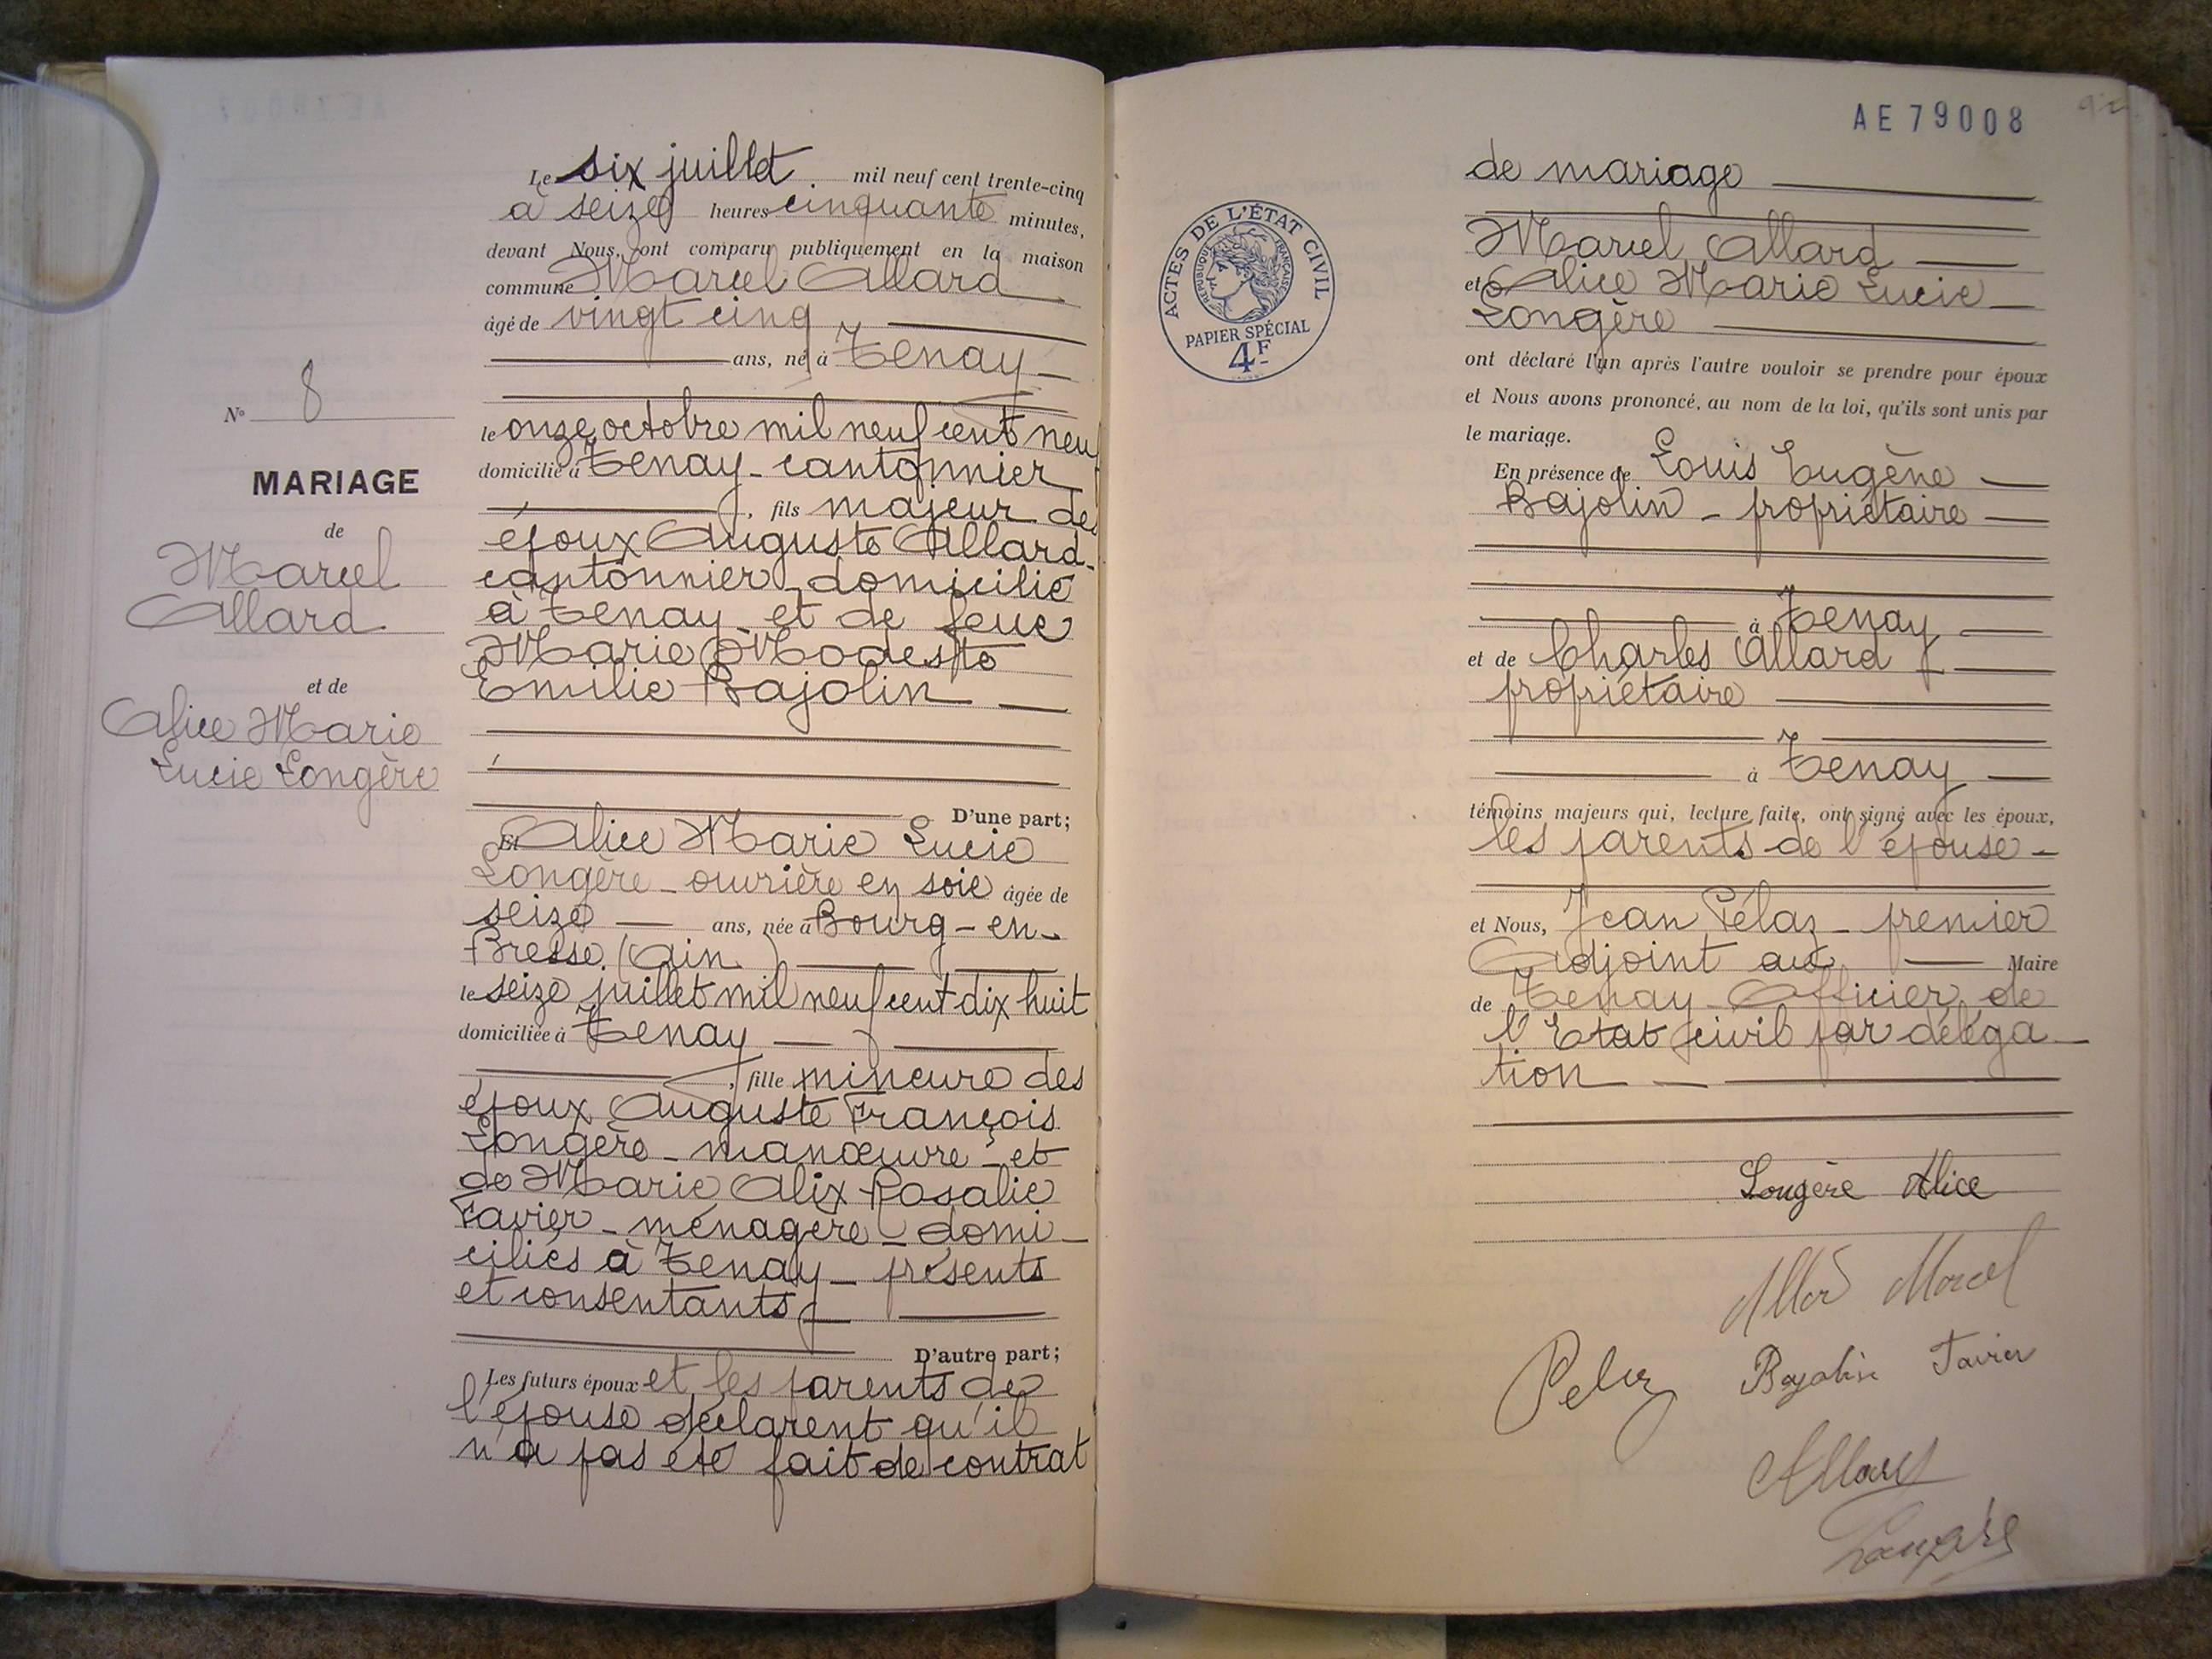 Le six juillet mil neuf cent trente-cinq
à seize heures cinquante minutes,
devant Nous, ont comparu publiquement en la maison
commune Marcel Allard
âgé de vingt cinq
ans, né à Tenay
le onze octobre mil neuf cent neuf
domicilié à Tenay - cantonnier
, fils majeur des
époux Auguste Allard -
cantonnier - domicilié
à Tenay - et de feue
Marie Modeste
Emilie Bajolin
D'une part;
Et Alice Marie Lucie
Longère - ouvrière en soie âgée de
seize ans, née à Bourg-en-
Bresse (Ain)
le seize juillet mil neuf cent dix huit
domiciliée à Tenay
, fille mineure des
époux Auguste François
Longère - manœuvre - et
de Marie Alix Rosalie
Favier - ménagère - domi-
ciliés à Tenay - présents
et consentants
D'autre part;
Les futurs époux et les parents de
l'épouse déclarent qu'il
n'a pas été fait de contrat
N° 8
MARIAGE
de
Marcel
Allard
et de
Alice Marie
Lucie Longère
AE 79008
92
ACTES DE L'ÉTAT CIVIL
RÉPUBLIQUE FRANÇAISE
PAPIER SPÉCIAL
4F
de mariage
Marcel Allard
et Alice Marie Lucie
Longère
ont déclaré l'un après l'autre vouloir se prendre pour époux
et Nous avons prononcé, au nom de la loi, qu'ils sont unis par
le mariage.
En présence de Louis Eugène
Bajolin - propriétaire
à Tenay
et de Charles Allard
propriétaire
à Tenay
témoins majeurs qui, lecture faite, ont signé avec les époux,
les parents de l'épouse -
et Nous, Jean Pélaz - premier
Adjoint au Maire
de Tenay - Officier de
l'Etat civil par déléga-
tion
Longère Alice
Allard Marcel
Pelaz Bajolin Favier
Allard
Longère